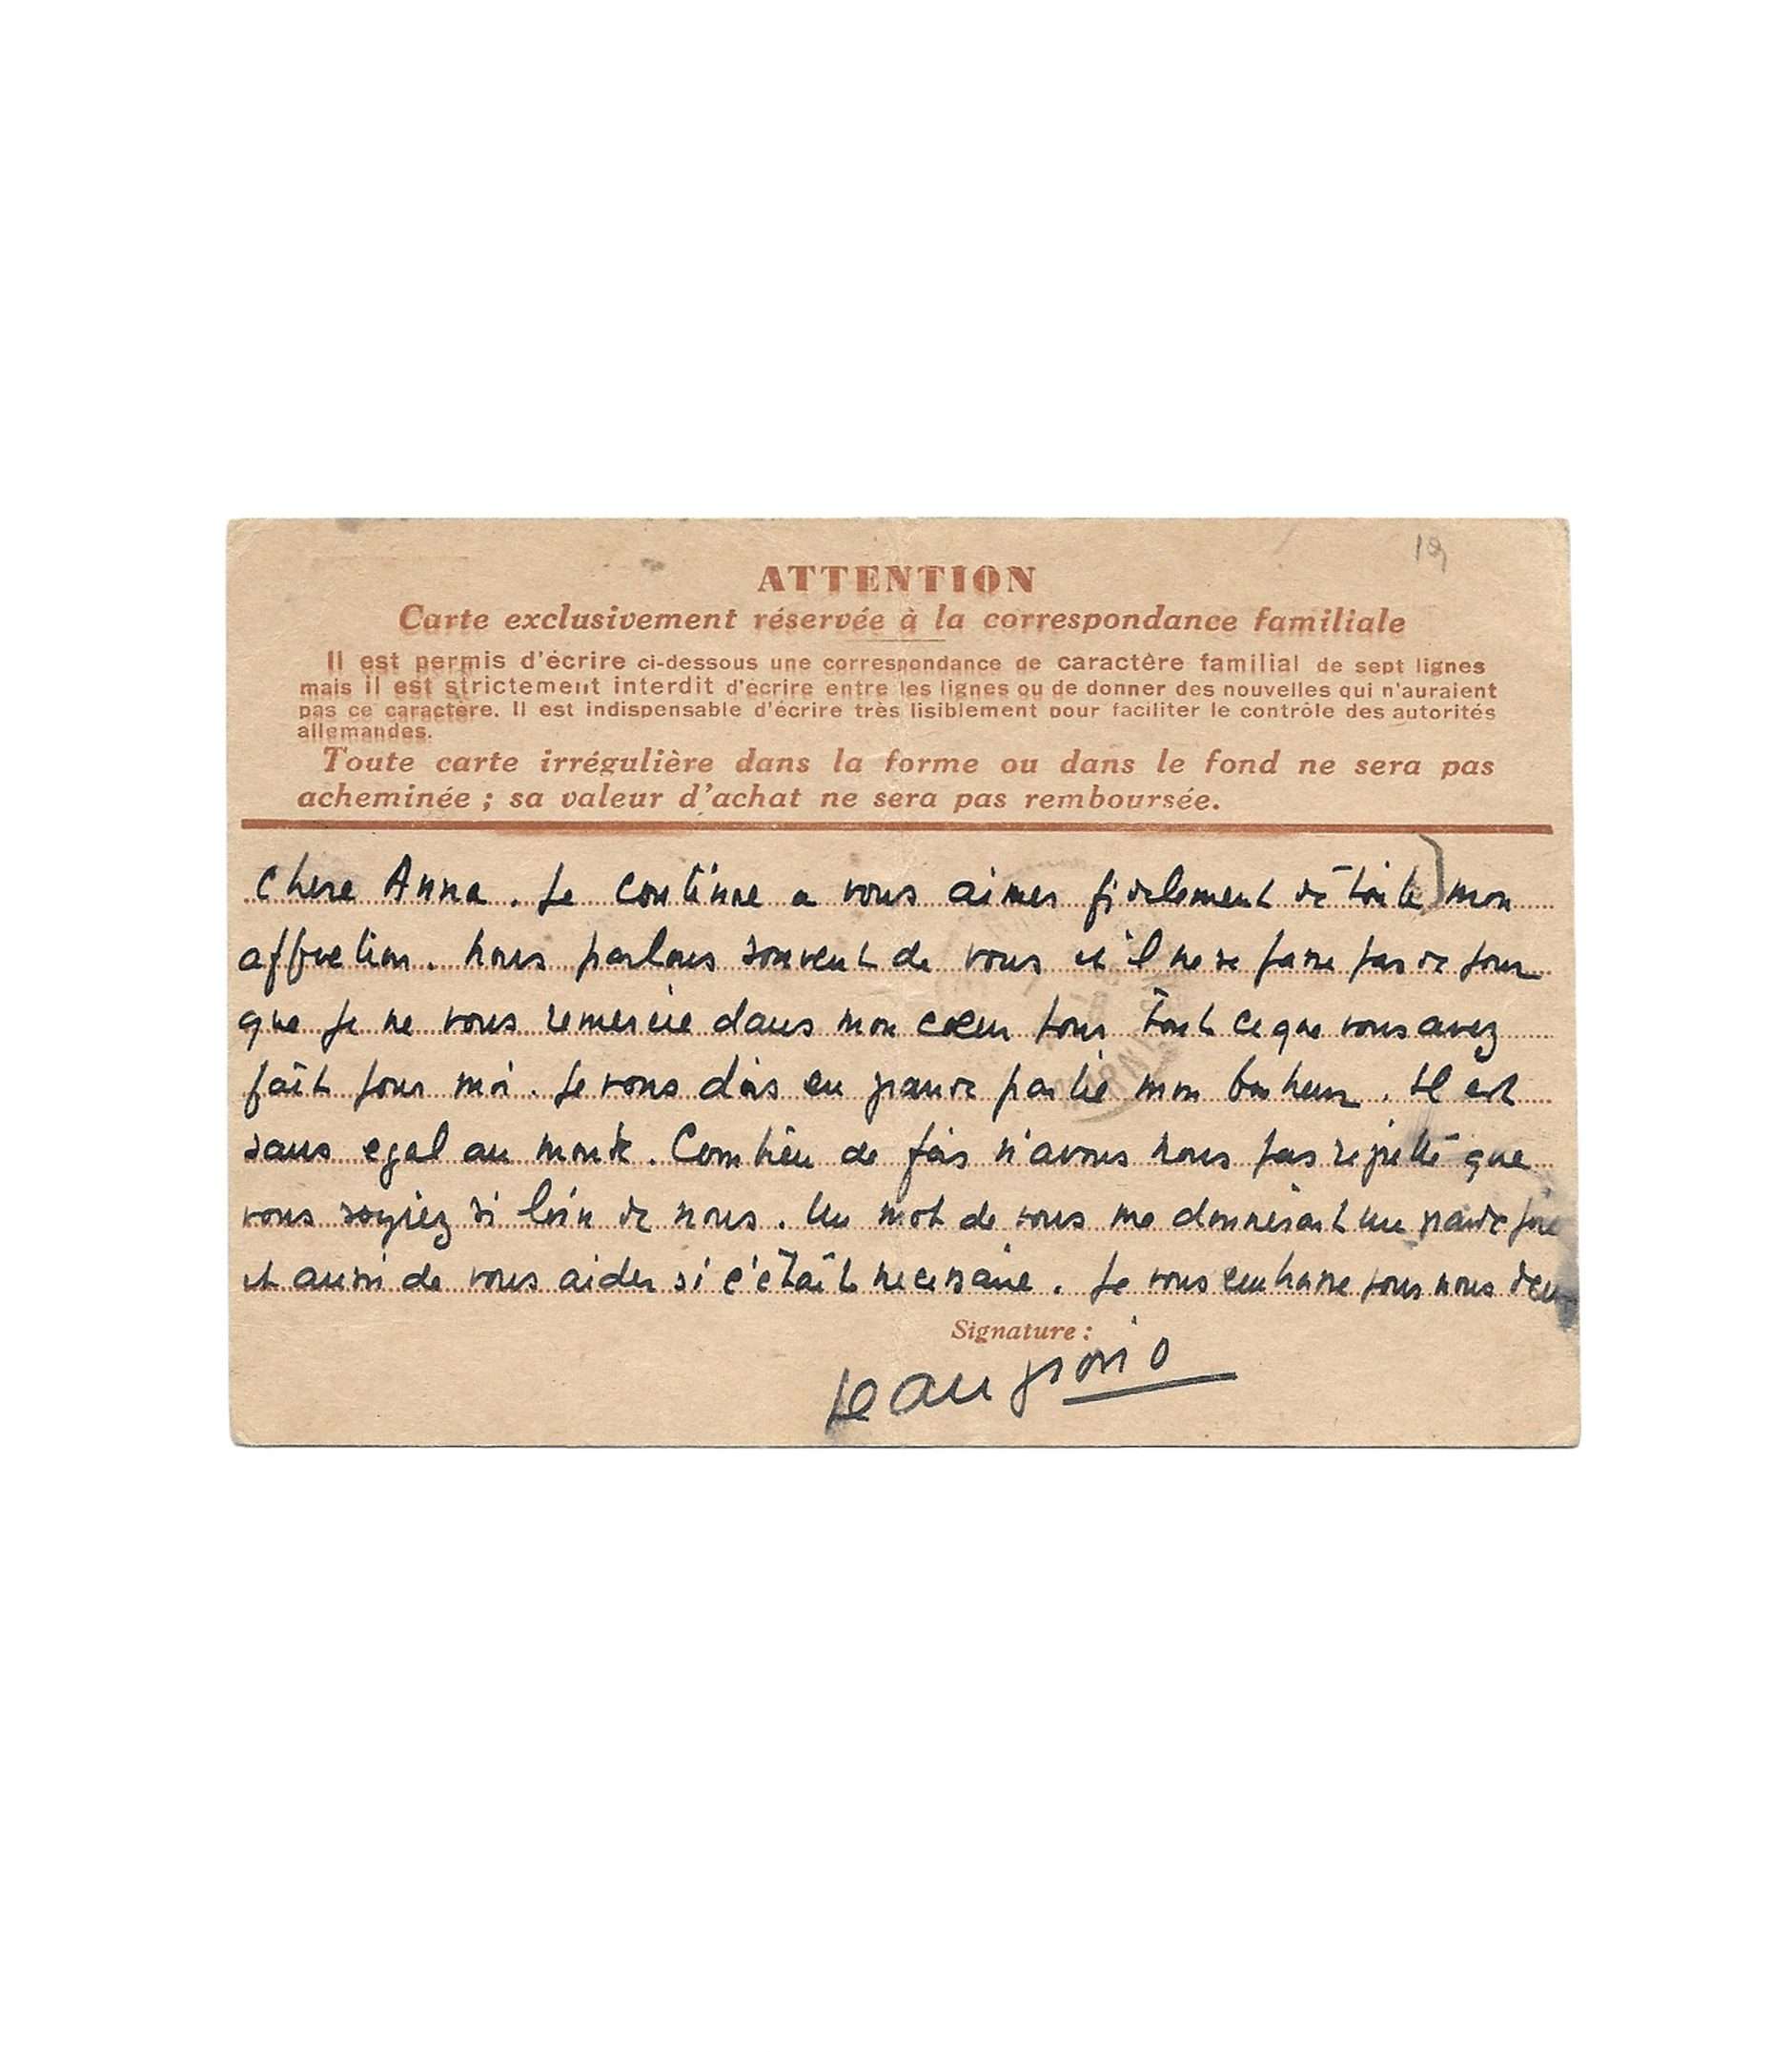 19
ATTENTION
Carte exclusivement réservée à la correspondance familiale
Il est permis d'écrire ci-dessous une correspondance de caractère familial de sept lignes
mais il est strictement interdit d'écrire entre les lignes ou de donner des nouvelles qui n'auraient
pas ce caractère. Il est indispensable d'écrire très lisiblement pour faciliter le contrôle des autorités
allemandes.
Toute carte irrégulière dans la forme ou dans le fond ne sera pas
acheminée ; sa valeur d'achat ne sera pas remboursée.
Chere Anna. Je continue a vous aimer fidelement de toute mon
affection. Nous parlons souvent de vous et il ne se passe pas de jour
que je ne vous remercie dans mon coeur pour tout ce que vous avez
fait pour moi. Je vous dois en grande partie mon bonheur. Il est
sans egal au monde. Combien de fois n'avons nous pas regretté que
vous soyiez si loin de nous. Un mot de vous me donnerait une grande joie
et aussi de vous aider si c'était necessaire. Je vous embrasse pour nous deux
Signature :
Jean Giono